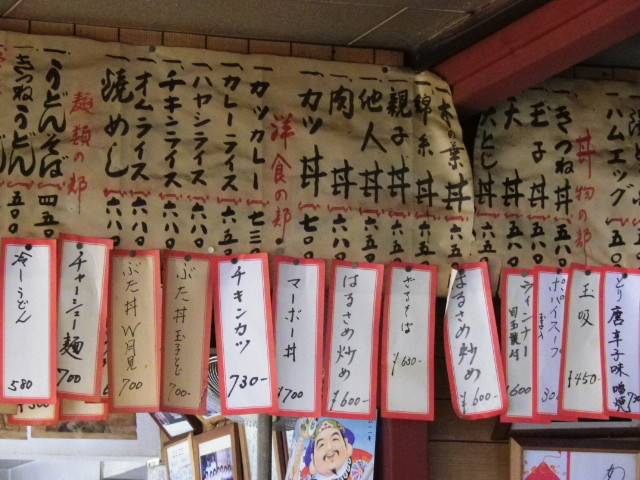 一ハムエッグ
丼物の部
一きつね丼 五八〇
一玉子丼 五八〇
一天丼 六五〇
一木の葉丼 六五〇
一錦糸丼 六五〇
一親子丼 六五〇
一他人丼 六五〇
一肉丼 六八〇
一カツ丼 七〇〇
洋食の部
一カツカレー 七三〇
一カレーライス 六五〇
一ハヤシライス 六五〇
一チキンライス 六八〇
一オムライス 六八〇
一焼めし 六八〇
麺類の部
一うどんそば 四五〇
一きつねうどん 五〇〇
とり唐辛子味噌焼
玉吸 ¥450-
ポパイスープ
ウインナー目玉焼付 ¥600
はるさめ炒め ¥600-
ざるそば ¥630-
はるさめ炒め ¥600-
マーボー丼 ¥700
チキンカツ 730-
ぶた丼玉子とじ 700
ぶた丼W月見 700
チャーシュー麺 700
冷しうどん 580